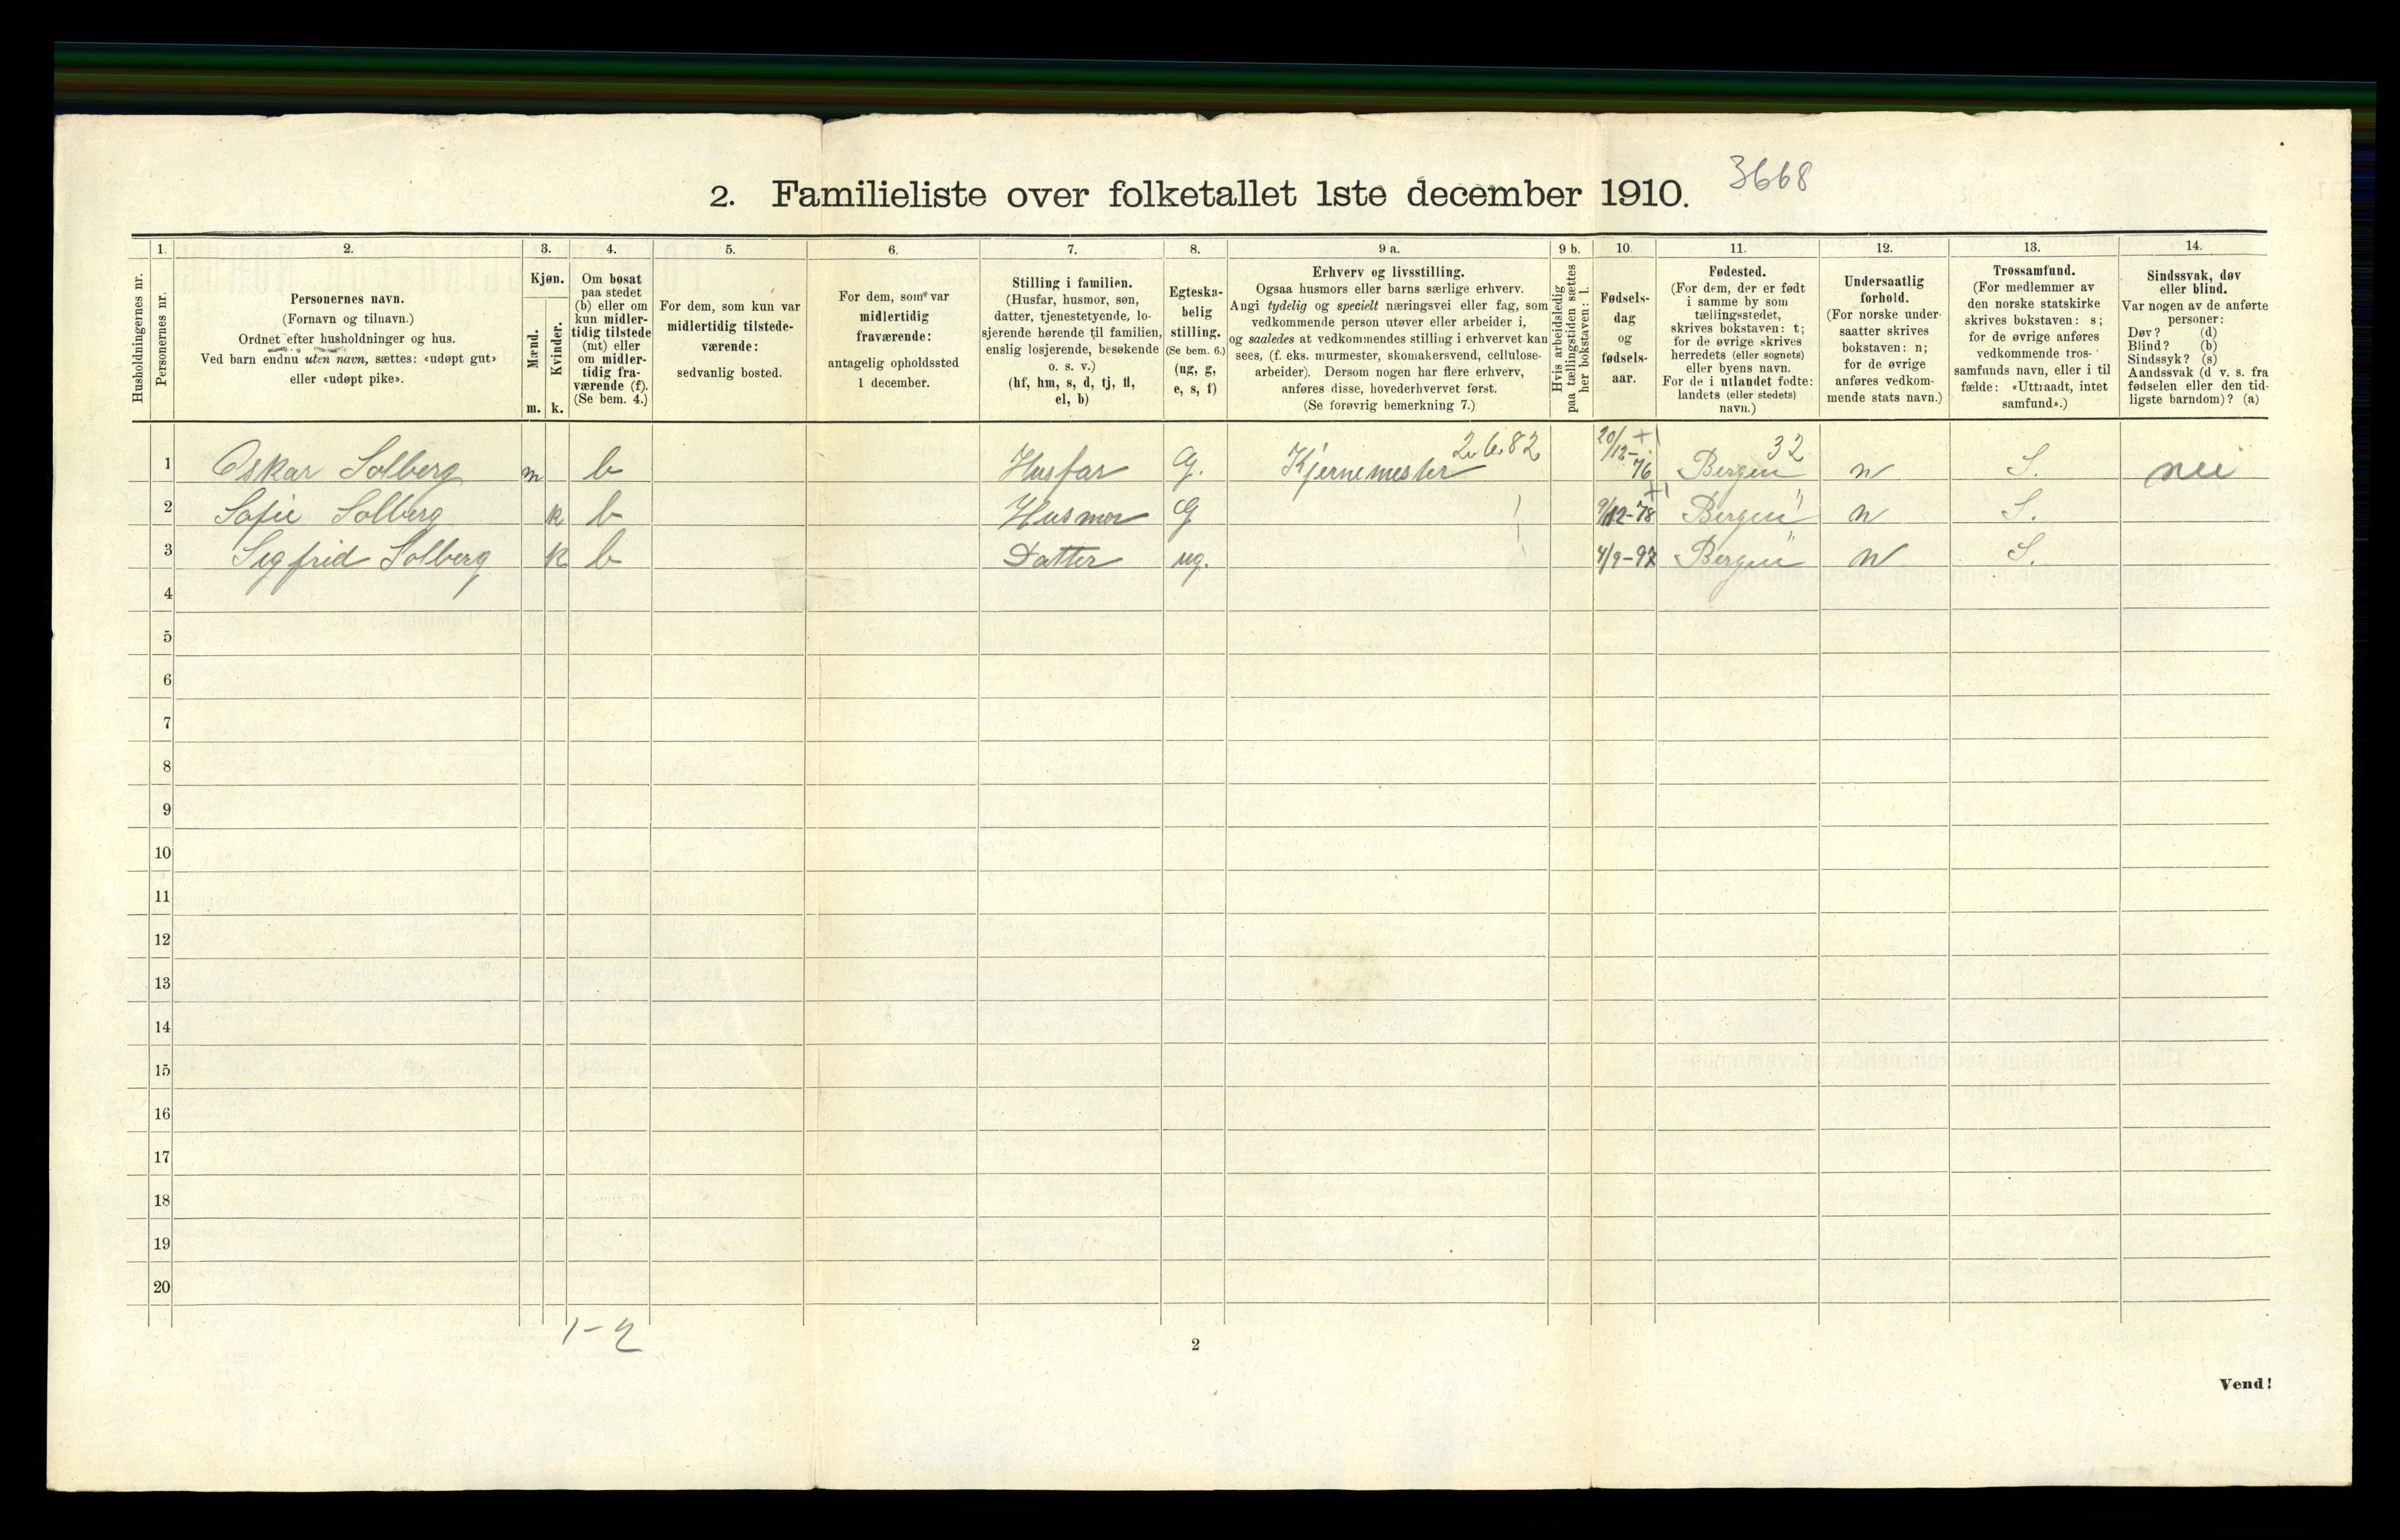 3668
2. Familieliste over folketallet 1ste december 1910.
1. 2. 3. 4. 5. 6. 7. 8. 9 a. 9 b. 10. 11. 12. 13. 14.
Husholdningernes nr.
Personernes nr.
Personernes navn.
(Fornavn og tilnavn.)
Ordnet efter husholdninger og hus.
Ved barn endnu uten navn, sættes: «udøpt gut»
eller «udøpt pike».
Kjøn.
Mænd.
Kvinder.
m. k.
Om bosat
paa stedet
(b) eller om
kun midler-
tidig tilstede
(mt) eller
om midler-
tidig fra-
værende (f).
(Se bem. 4.)
For dem, som kun var
midlertidig tilstede-
værende:
sedvanlig bosted.
For dem, som var
midlertidig
fraværende:
antagelig opholdssted
1 december.
Stilling i familien.
(Husfar, husmor, søn,
datter, tjenestetyende, lo-
sjerende hørende til familien,
enslig losjerende, besøkende
o. s. v.)
(hf, hm, s, d, tj, fl,
el, b)
Egteska-
belig
stilling.
(Se bem. 6.)
(ug, g,
e, s, f)
Erhverv og livsstilling.
Ogsaa husmors eller barns særlige erhverv.
Angi tydelig og specielt næringsvei eller fag, som
vedkommende person utøver eller arbeider i,
og saaledes at vedkommendes stilling i erhvervet kan
sees, (f. eks. murmester, skomakersvend, cellulose-
arbeider). Dersom nogen har flere erhverv,
anføres disse, hovederhvervet først.
(Se forøvrig bemerkning 7.)
Hvis arbeidsledig
paa tællingstiden sættes
her bokstaven: l.
Fødsels-
dag
og
fødsels-
aar.
Fødested.
(For dem, der er født
i samme by som
tællingsstedet,
skrives bokstaven: t;
for de øvrige skrives
herredets (eller sognets)
eller byens navn.
For de i utlandet fødte:
landets (eller stedets)
navn.)
Undersaatlig
forhold.
(For norske under-
saatter skrives
bokstaven: n;
for de øvrige
anføres vedkom-
mende stats navn.)
Trossamfund.
(For medlemmer av
den norske statskirke
skrives bokstaven: s;
for de øvrige anføres
vedkommende tros-
samfunds navn, eller i til
fælde: «Uttraadt, intet
samfund».)
Sindssvak, døv
eller blind.
Var nogen av de anførte
personer:
Døv? (d)
Blind? (b)
Sindssyk? (s)
Aandssvak (d. v. s. fra
fødselen eller den tid-
ligste barndom)? (a)
1 Oskar Solberg m b Husfar G. Kjernemester 2.6.82 20/12-76 +1 Bergen 32 n S. nei
2 Sofie Solberg k b Husmor G 9/12-78 +1 Bergen n S.
3 Sigfrid Solberg k b Datter ug. 4/9-97 Bergen n S.
4
5
6
7
8
9
10
11
12
13
14
15
16
17
18
19
20
1-2
2
Vend!